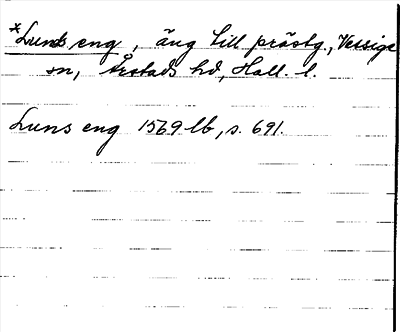 *Lunds eng, äng till prästg., Vessige
sn, Årstads hd, Hall. l.
Luns eng 1569 lb, s. 691.